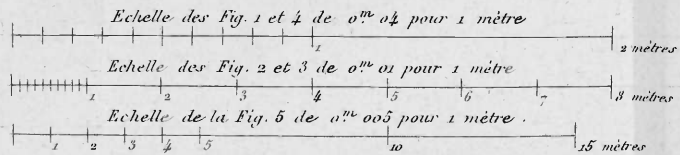 Echelle des Fig. 1 et 4 de 0ᵐ 04 pour 1 mètre
1 2 mètres
Echelle des Fig. 2 et 3 de 0ᵐ 01 pour 1 mètre
1 2 3 4 5 6 7 8 mètres
Echelle de la Fig. 5 de 0ᵐ 005 pour 1 mètre.
1 2 3 4 5 10 15 mètres